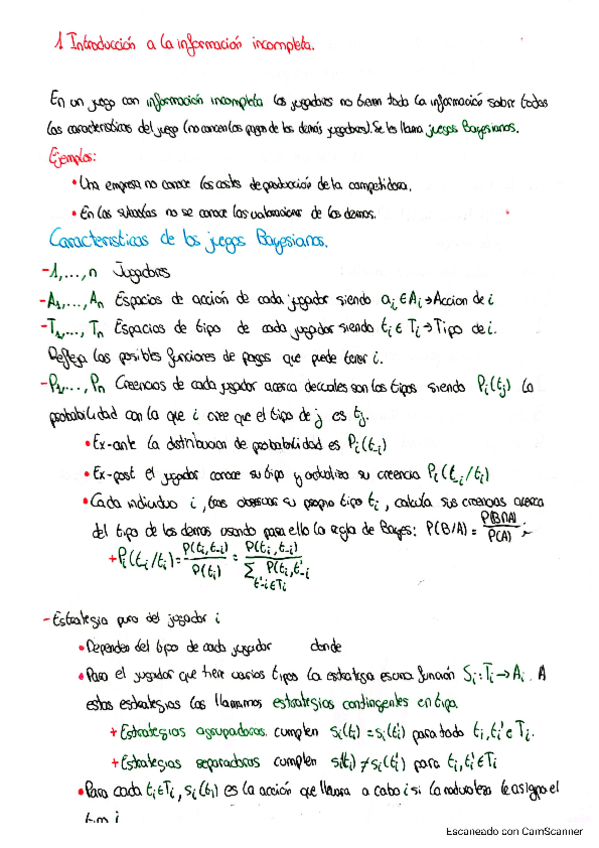 1 Introducción a la información incompleta.
En un juego con información incompleta los jugadores no tienen toda la información sobre todas
las características del juego (no conocen los pagos de los demás jugadores). Se les llama juegos Bayesianos.
Ejemplos:
• Una empresa no conoce los costes de producción de la competidora.
• En las subastas no se conoce las valoraciones de los demás.
Características de los juegos Bayesianos.
-1,..., n Jugadores
-A₁,..., Aₙ Espacios de acción de cada jugador siendo aᵢ ∈ Aᵢ → Accion de i
-T₁,..., Tₙ Espacios de tipo de cada jugador siendo tᵢ ∈ Tᵢ → Tipo de i.
Refleja las posibles funciones de pagos que puede tener i.
-P₁,..., Pₙ Creencias de cada jugador acerca de cuales son los tipos siendo Pᵢ(tⱼ) la
probabilidad con la que i cree que el tipo de j es tⱼ.
• Ex-ante la distribucion de probabilidad es Pᵢ(t₋ᵢ)
• Ex-post el jugador conoce su tipo y actualiza su creencia Pᵢ(t₋ᵢ/tᵢ)
• Cada individuo i, tras observar su propio tipo tᵢ, calcula sus creencias acerca
del tipo de los demas usando para ello la regla de Bayes: P(B/A) = P(B∩A)/P(A) ;
+ Pᵢ(t₋ᵢ/tᵢ) = P(tᵢ,t₋ᵢ)/P(tᵢ) = P(tᵢ,t₋ᵢ)/∑ P(tᵢ,t'₋ᵢ
t'₋ᵢ∈Tᵢ
- Estrategia pura del jugador i
• Dependen del tipo de cada jugador donde
• Para el jugador que tiene varios tipos la estrategia es una función Sᵢ: Tᵢ → Aᵢ. A
estas estrategias las llamamos estrategias contingentes en tipo.
+ Estrategias agrupadoras. cumplen sᵢ(tᵢ) = sᵢ(tᵢ') para todo tᵢ,tᵢ' ∈ Tᵢ.
+ Estrategias separadoras cumplen sᵢ(tᵢ) ≠ sᵢ(tᵢ') para tᵢ,tᵢ' ∈ Tᵢ
• Para cada tᵢ ∈ Tᵢ, sᵢ(tᵢ) es la acción que llevara a cabo i si la naturaleza le asigna el
Escaneado con CamScanner